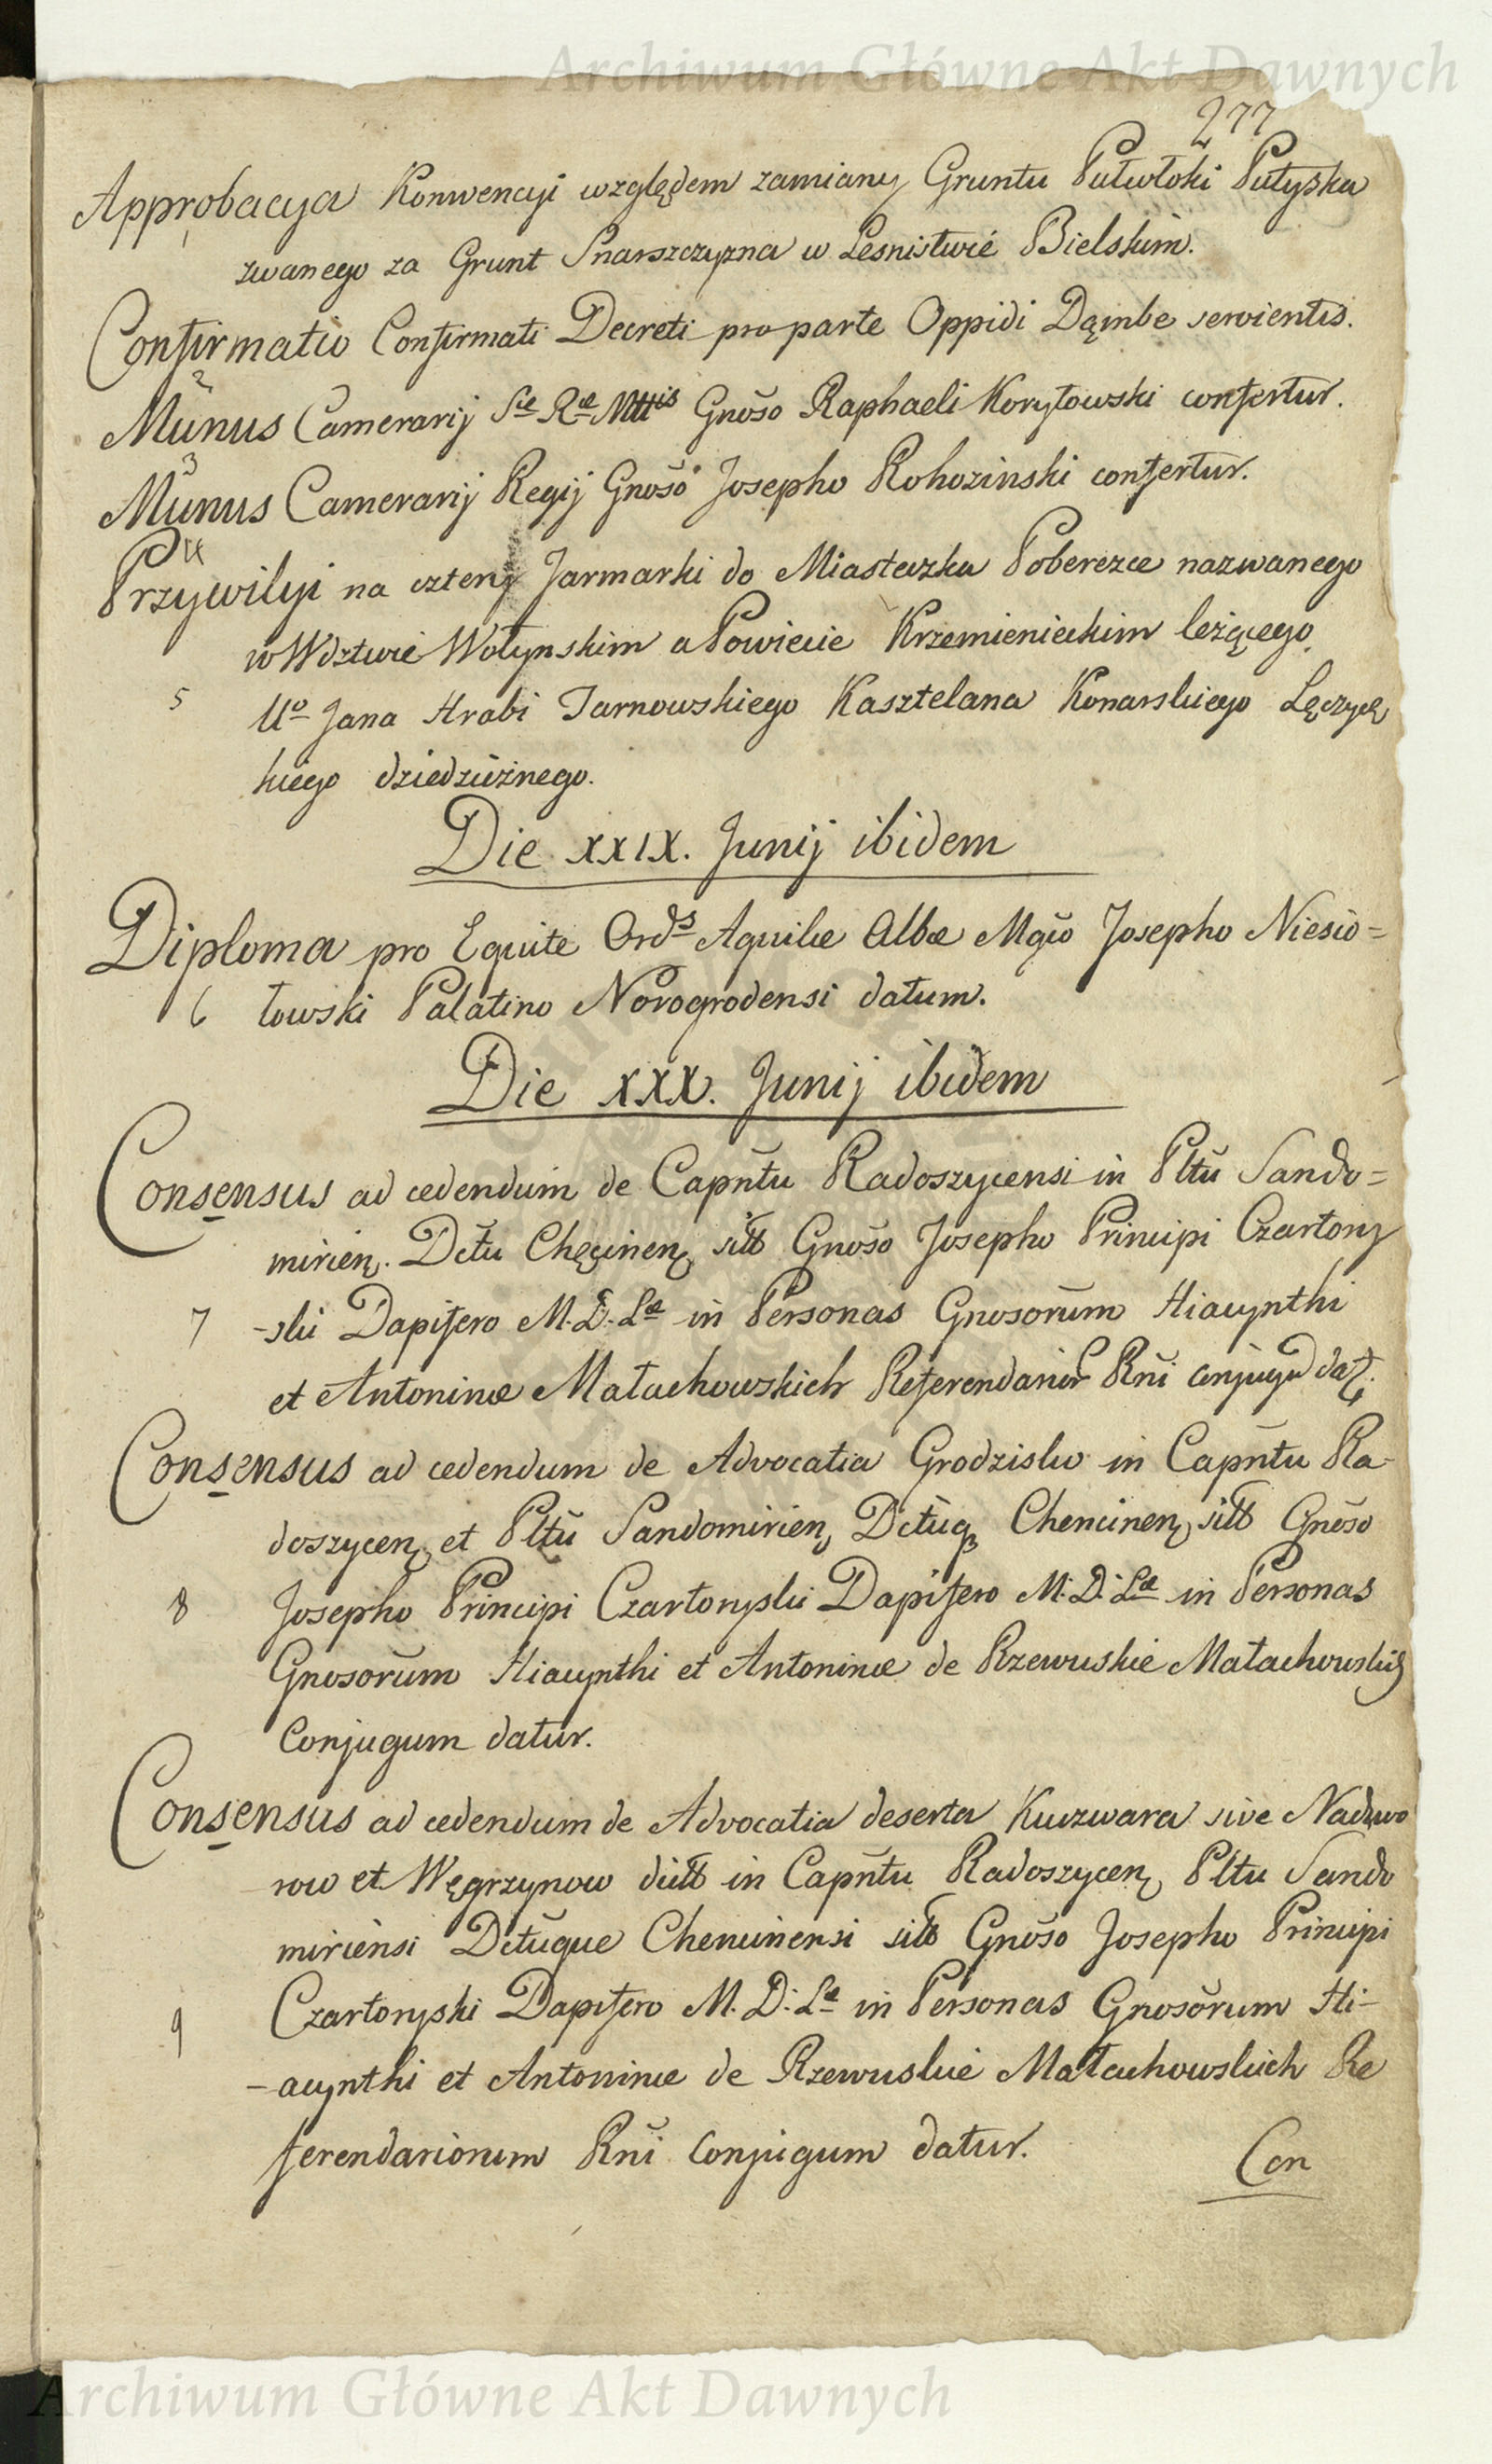 Archiwum Główne Akt Dawnych
277
Approbacya Konwencyi względem zamiany Gruntu Pułwłoki Pułyska
zwanego za Grunt Snarszczyzna w Lesnistwie Bielskim.
1
Confirmatio Confirmati Decreti pro parte Oppidi Dąmbe servientis.
2
Munus Camerarij Sæ Ræ Mttis Gnõso Raphaeli Korytowski confertur.
3
Munus Camerarij Regij Gnõso Josepho Rohozinski confertur.
4
Przywilyi na cztery Jarmarki do Miasteczka Poberezce nazwanego
w Wdztwie Wołynskim a Powiecie Krzemienieckim leżącego
5 Uo Jana Hrabi Tarnowskiego Kasztelana Konarskiego Lęczyc
kiego dziedzicznego.
Die XXIX. Junij ibidem
Diploma pro Equite Ords Aquilæ Albæ Mgco Josepho Niesio=
6 łowski Palatino Novogrodensi datum.
Die XXX. Junij ibidem
Consensus ad cedendum de Capñtu Radoszycensi in Pltũ Sando=
mirien. Dctũ Chęcinen sitt Gnõso Josepho Principi Czartory
7 -ski Dapifero M. D. Læ in Personas Gnosorũm Hiacynthi
et Antoninæ Małachowskich Referendarior Rñi conjugũ dat.
Consensus ad cedendum de Advocatia Grodzisko in Capñtu Ra-
doszycen et Pltũ Sandomirien Dctũq Chencinen sitt Gnõso
8 Josepho Principi Czartoryski Dapifero M: D: Læ in Personas
Gnosorũm Hiacynthi et Antoninæ de Rzewuskie Małachowskich
Conjugum datur.
Consensus ad cedendum de Advocatia deserta Kuczwara sive Naduwo
row et Węgrzynow dictt in Capñtu Radoszycen Pltu Sando
miriensi Dctũque Chencinensi sitt Gnõso Josepho Principi
9 Czartoryski Dapifero M. D: Læ in Personas Gnosõrum Hi-
-acynthi et Antoninæ de Rzewuskie Małachowskich Re
ferendariorum Rñi Conjugum datur.
Con
Archiwum Główne Akt Dawnych